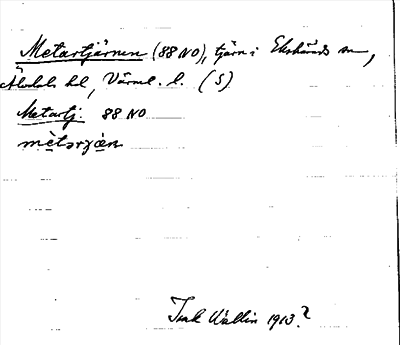 Metartjärnen (88 NO), tjärn i Ekshärads sn,
Älvdals hd, Värml. l. (S)
Metartj. 88 NO
mètarjæn
Isak Wallin 1913?